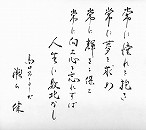 常に憧れを抱き
常に夢を求め
常に輝きを保ち
常に向上心を忘れずば
人生に敗北なし